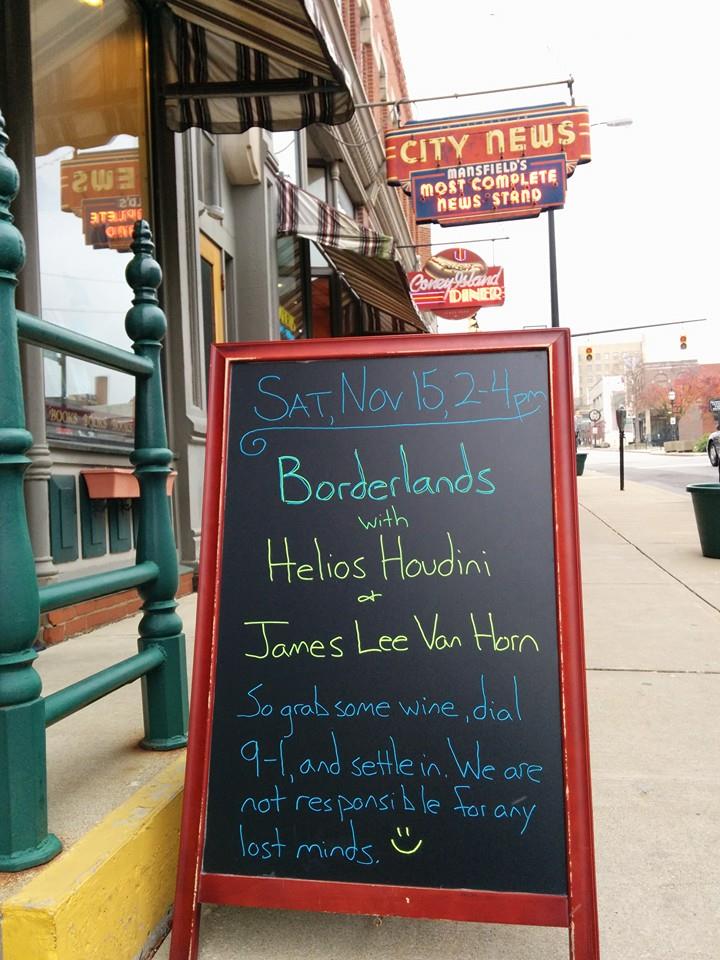 CITY NEWS
MANSFIELD'S
MOST COMPLETE
NEWS STAND
Coney Island
DINER
SAT, NOV 15, 2-4pm
Borderlands
with
Helios Houdini
or
James Lee Van Horn
So grab some wine, dial
9-1, and settle in. We are
not responsible for any
lost minds.